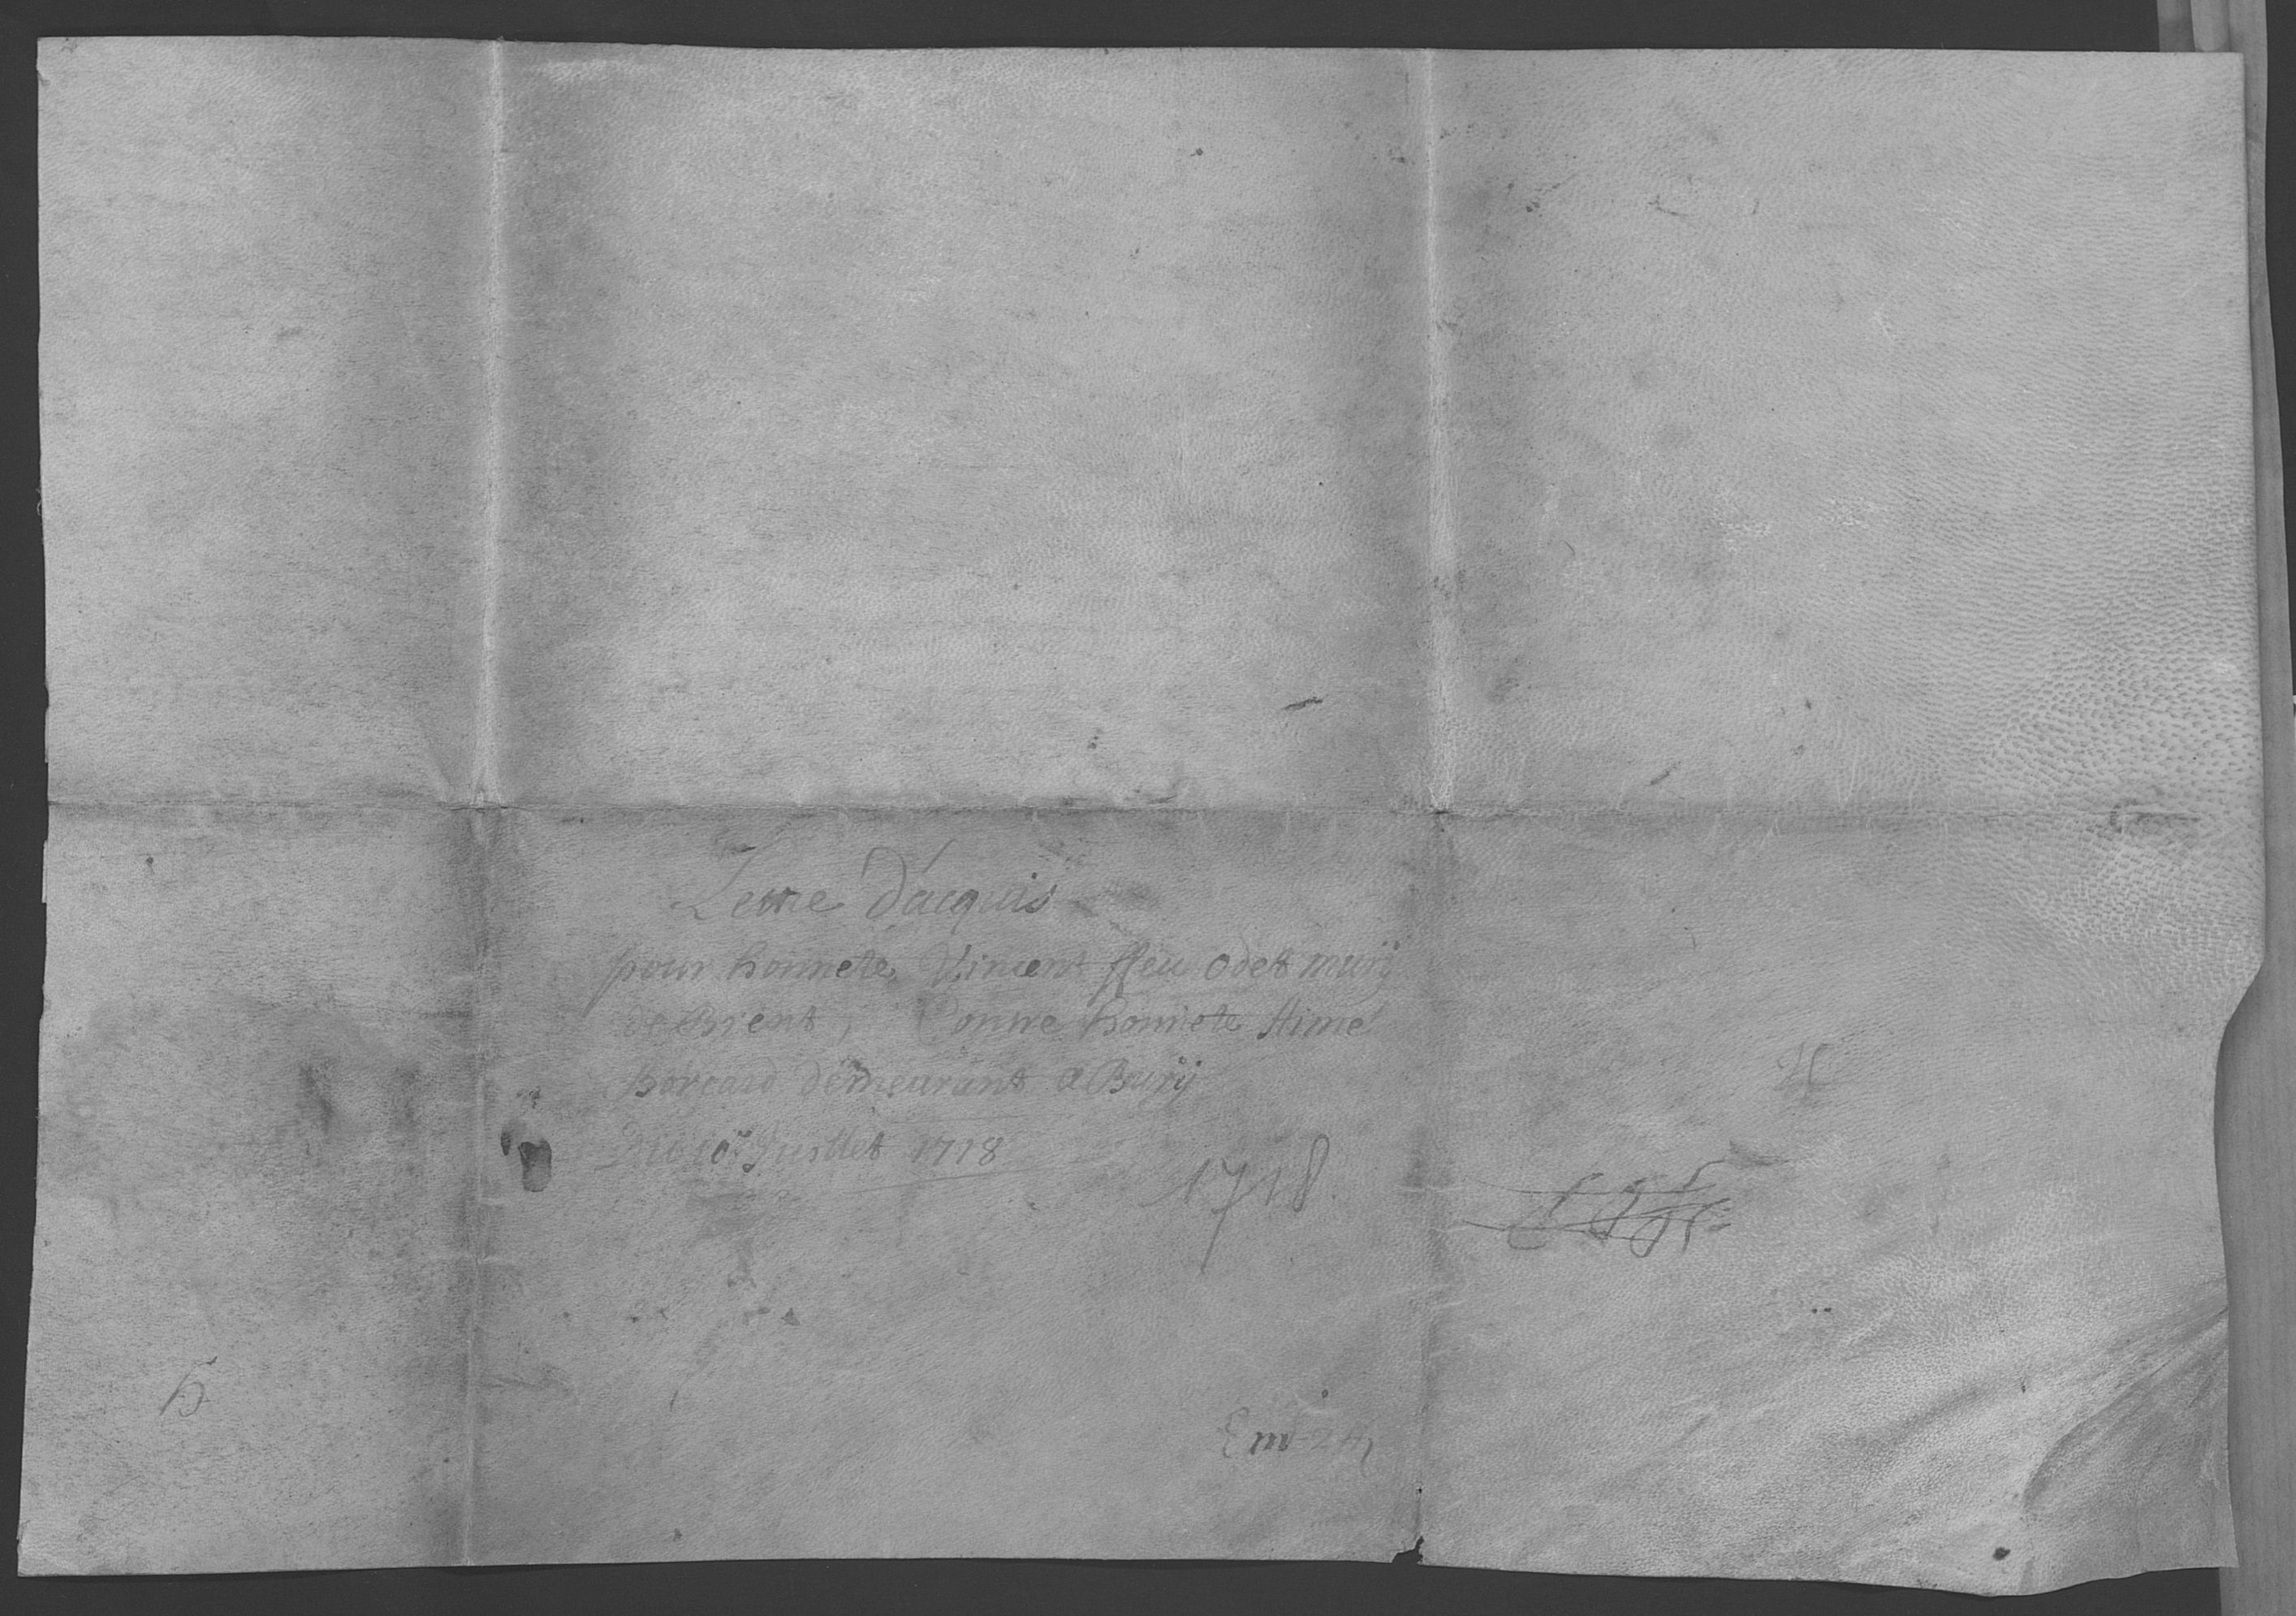 Lettre d'acquis
pour honnete Vincent ffeu odet murÿ
de Brent, Contre honnete Aimé
borcard demeurant a Burÿ
Du 10.e Juillet 1718
1718
h